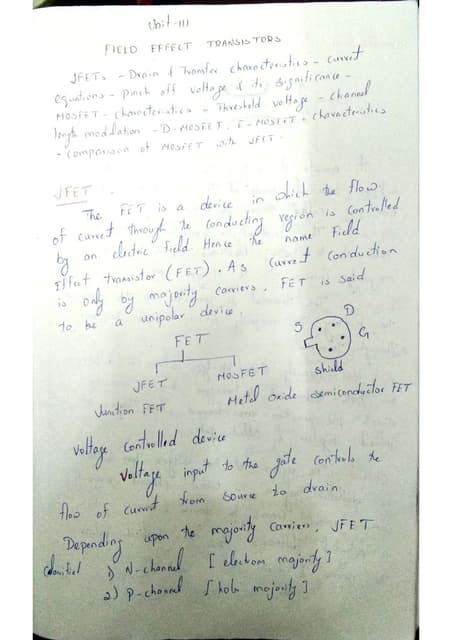 Unit-III
FIELD EFFECT TRANSISTORS
JFETs - Drain & Transfer characteristics - current
equations - pinch off voltage & its significance -
MOSFET - characteristics - Threshold voltage - channel
length modulation - D-MOSFET, E-MOSFET - characteristics
- comparison of MOSFET with JFET.
JFET
The FET is a device in which the flow
of current through the conducting region is controlled
by an electric field. Hence the name Field
Effect transistor (FET). As current conduction
is only by majority carriers, FET is said
to be a unipolar device.
FET
JFET MOSFET
Junction FET Metal oxide semiconductor FET
S D G
shield
Voltage controlled device
Voltage input to the gate controls the
flow of current from source to drain
Depending upon the majority carriers, JFET
classified 1) N-channel [electrons majority]
2) P-channel [hole majority]